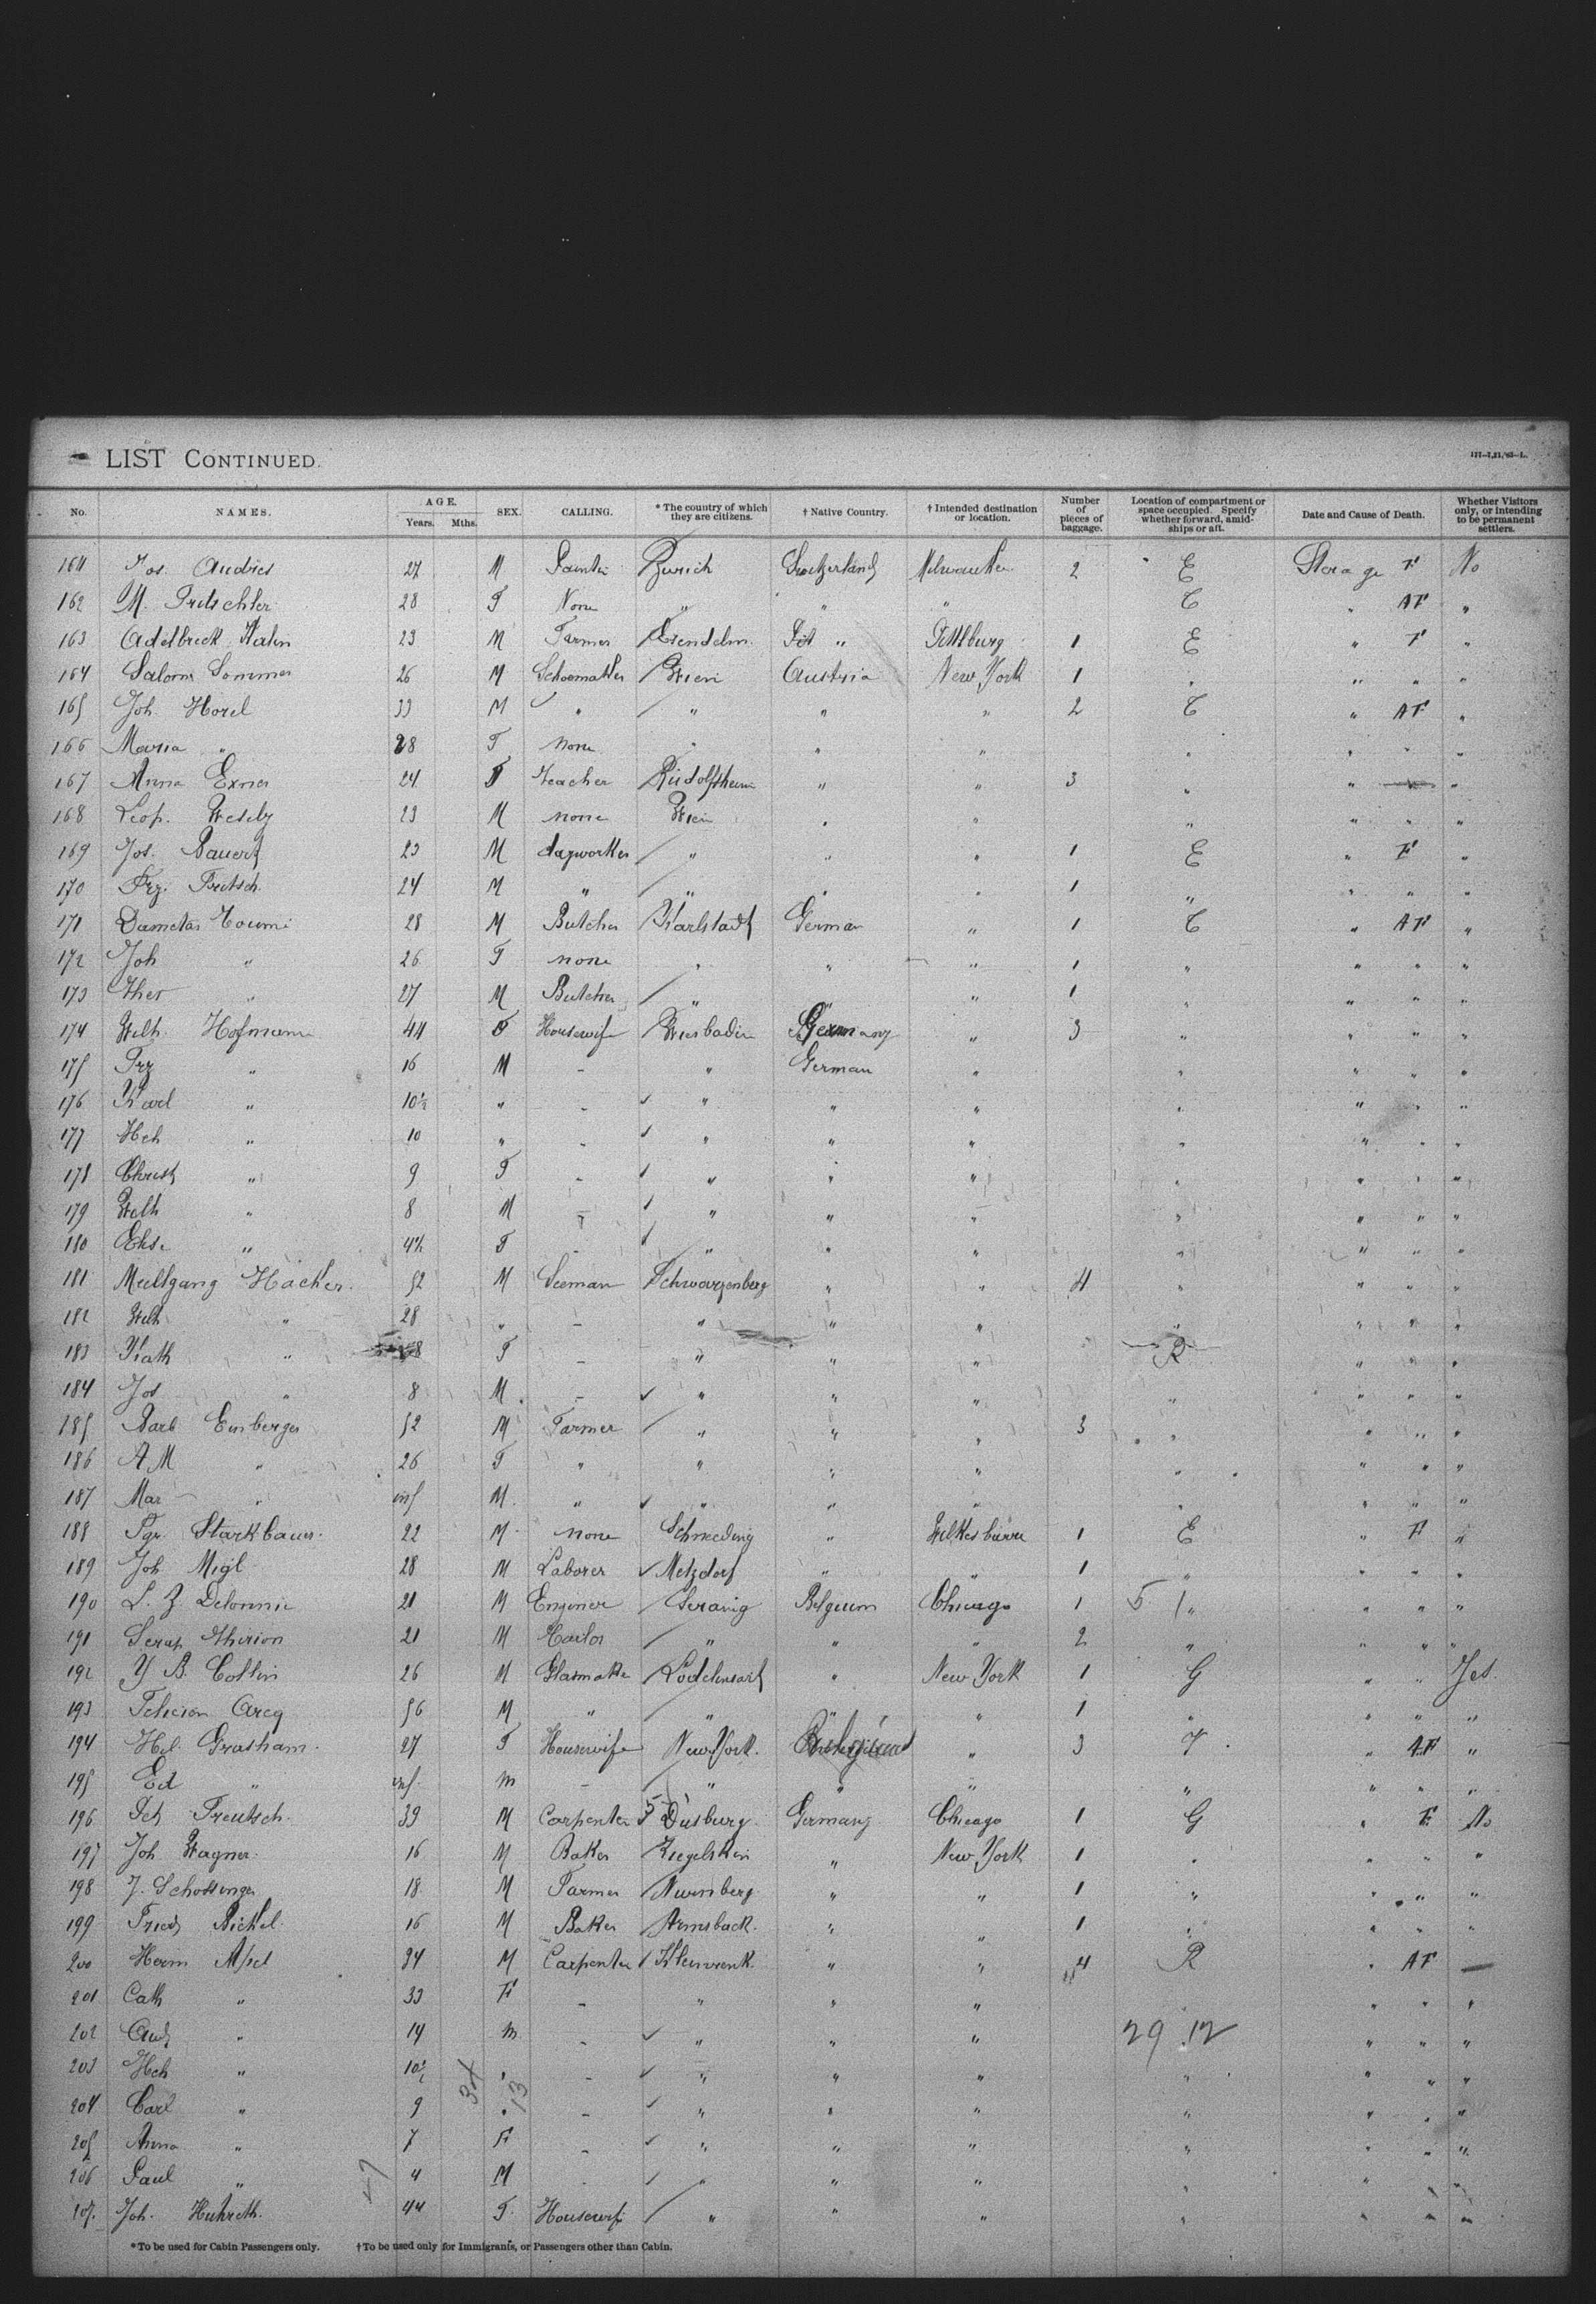 LIST CONTINUED.
No. NAMES. AGE. Years. Mths. SEX. CALLING. * The country of which they are citizens. † Native Country. † Intended destination or location. Number of pieces of baggage. Location of compartment or space occupied. Specify whether forward, amidships or aft. Date and Cause of Death. Whether Visitors only, or intending to be permanent settlers.
161 Jos. Andries 27 M Painter Zurich Switzerland Milwaukee 2 E Steerage F No
162 M. Pritschler 28 F None " " " C " AF "
163 23 M Farmer " Pittsburg 1 E " F "
164 Salom Sommer 26 M Schoemaker Wien Austria New York 1 " " " "
165 Joh. Horel 33 M " " " " 2 C " AF "
166 Maria " 28 F none " " " " " " "
167 Anna Exner 24 F Teacher Rudolfsheim " " 3 " " "
168 Leop. Wesely 23 M none Wien " " " " " "
169 Jos. 23 M dayworker " " " 1 E " F "
170 Frz. Pritsch 24 M " " " " 1 " " " "
171 28 M Butcher Karlstadt German " 1 C " AF "
172 Joh " 26 F none " " " 1 " " " "
173 Ther " 27 M Butcher " " " 1 " " " "
174 Wilh. Hofmann 44 F Housewife Wiesbaden Germany " 3 " " " "
175 Frz " 16 M - " German " " " " "
176 Karl " 10½ " - " " " " " " "
177 Hch " 10 " - " " " " " " "
178 Christ " 9 F - " " " " " " "
179 Wilh " 8 M - " " " " " " "
180 Elise " 4½ F - " " " " " " "
181 Hacker 52 M Seeman Schwarzenberg " " 4 " " " "
182 Wilh " 28 " - " " " " " " "
183 Kath " F - " " " R " " "
184 Jos " 8 M - " " " " " " "
185 Barb Emberger 52 M Farmer " " " 3 " " " "
186 A M " 26 F " " " " " " " "
187 Mar " inf M " " " " " " " "
188 Starkbauer 22 M none Schmeding " Wilkesbarre 1 E " F "
189 Joh Migl 28 M Laborer Metzdorf " " 1 " " " "
190 L. Z. Delonnie 21 M Enginer Seraing Belgium Chicago 1 5 1 " " " "
191 Serap Thirion 21 M Tailor " " " 2 " " " "
192 Y B. Collin 26 M Glasmake Lodelinsart " New York 1 G " " Yes
193 Felicien Arcq 56 M " " " " 1 " " " "
194 Hel. Grasham 27 F Housewife New York. " 3 " AF "
195 Ed " inf. m - " " " " " " "
196 39 M Carpenter Duisburg Germany Chicago 1 G " F No
197 Joh Wagner 16 M Baker " New York 1 " " " "
198 J. 18 M Farmer Nurnberg " " 1 " " " "
199 Fried Bickel 16 M Baker " " 1 " " " "
200 Herm Apel 34 M Carpenter " " 4 R " AF
201 Cath " 33 F - " " " " " "
202 And " 14 m - " " " 29 12 " " "
203 Hch " 10½ " - " " " " " " "
204 Carl " 9 " - " " " " " " "
205 Anna " 7 F - " " " " " " "
206 Paul " 4 M " " " " " "
207 Joh. 44 F Housewife " " " " " " "
*To be used for Cabin Passengers only. †To be used only for Immigrants, or Passengers other than Cabin.